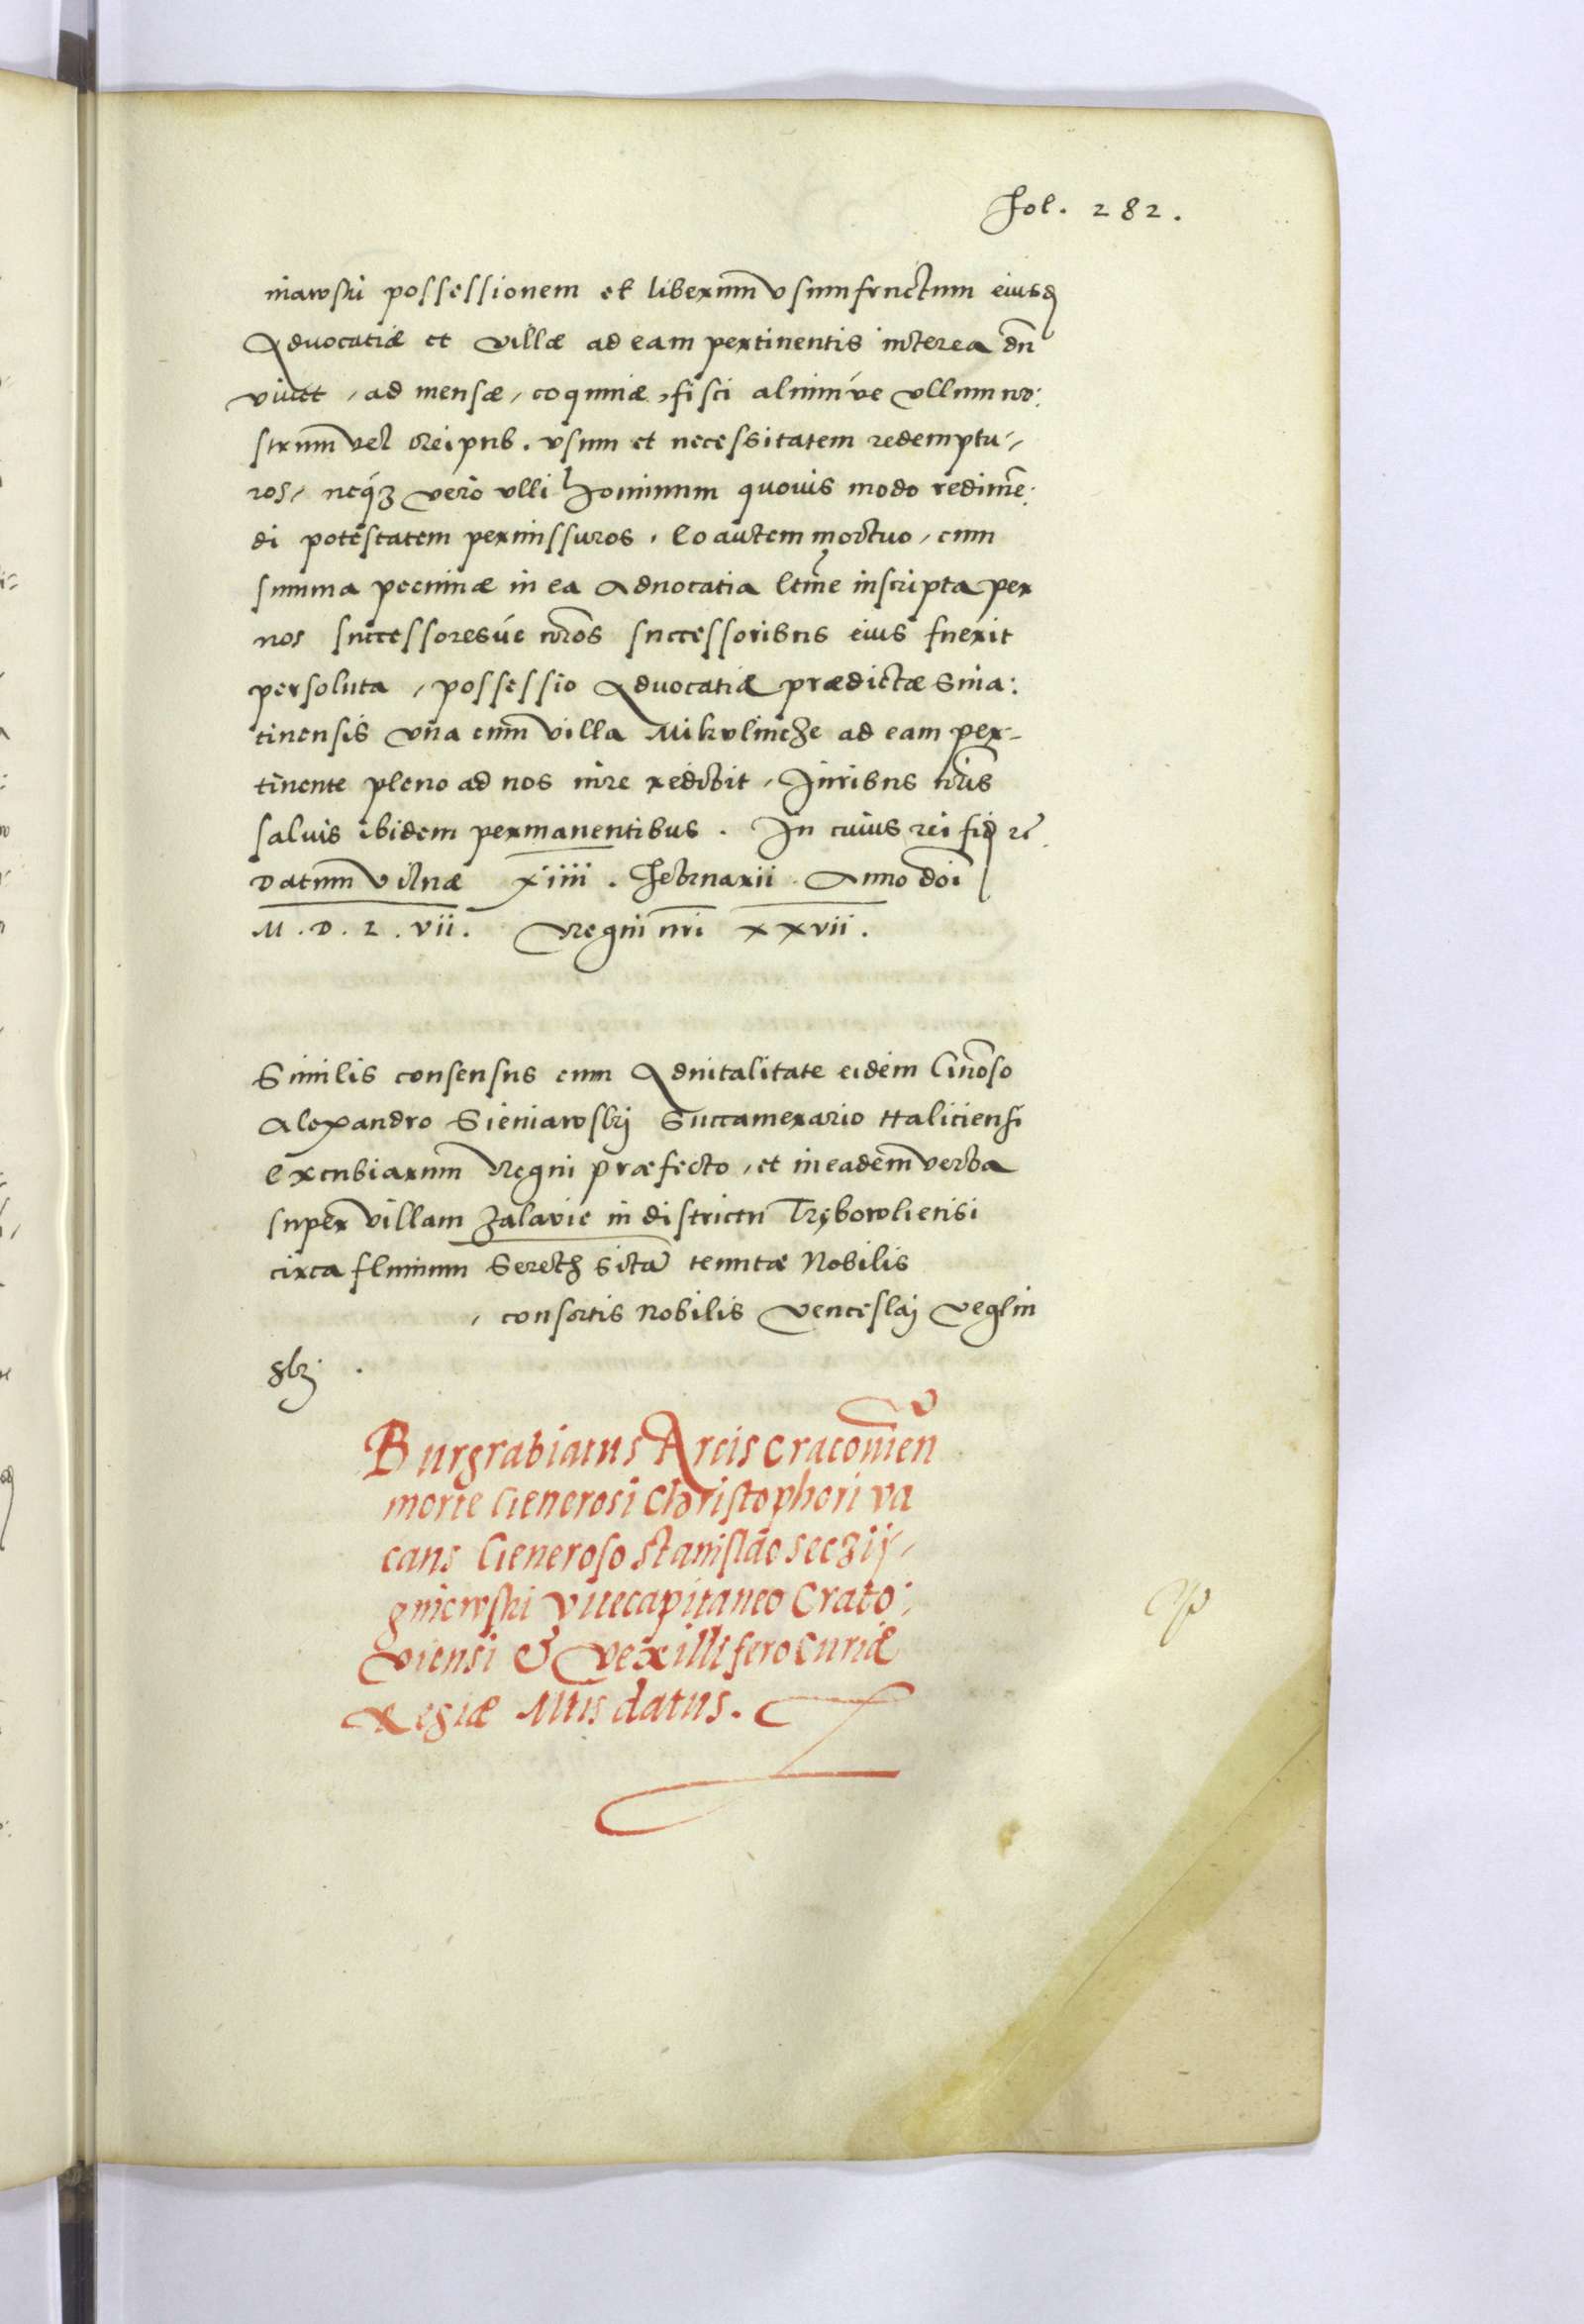 fol. 282.
niawski possessionem et liberum usumfructum eiusd
Advocatiæ et villæ ad eam pertinentis interea dū
vivet, ad mensæ, coquinæ, fisci aliumve ullum no:
strum vel Reipub. usum et necessitatem redemptu,
ros, neq́ꝫ vero ulli hominum quovis modo redimē:
di potestatem permissuros. Eo autem mortuo, cum
summa pecuniæ in ea Advocatia ltīme inscripta per
nos successoresúe nr̄os successoribus eius fuerit
persoluta, possessio Advocatiæ prædictæ Snia:
tinensis una cum villa Mikulincze ad eam per-
tinente pleno ad nos iure redibit, Juribus nr̄is
salvis ibidem permanentibus. In cuius rei fid rc̄
Datum Vilnæ xiiii. Februarii. Anno doī
M.D.L.vii. Regni nr̄i xxvii.
Similis consensus cum Advitalitate eidem Gn̄oso
Alexandro Sieniawskj Succamerario Haliciensi
Excubiarum Regni præfecto, et in eadem verba
super villam Zalavie in districtu Trębowliensi
circa fluvium Sereth sitā tenutæ Nobilis
, consortis Nobilis Venceslaj Veglin
skj.
Burgrabiatus Arcis Cracovien̄
morte Generosi Christophori va
cans Generoso Stanislao Seczij,
gniewski Vicecapitaneo Craco:
viensi & Vexillifero Curiæ
Regiæ Mtis datus.